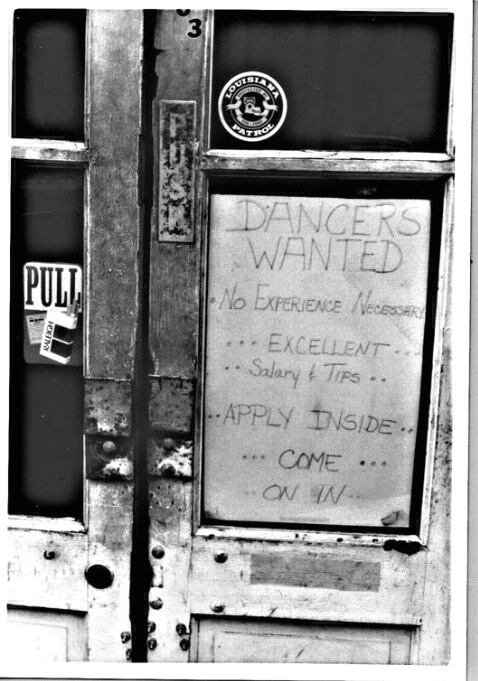 3
LOUISIANA
PATROL
PUSH
PULL
RALEIGH
DANCERS
WANTED
• No Experience Necessary
••• EXCELLENT •••
•• Salary & Tips ••
•• APPLY INSIDE ••
••• COME •••
•• ON IN ••